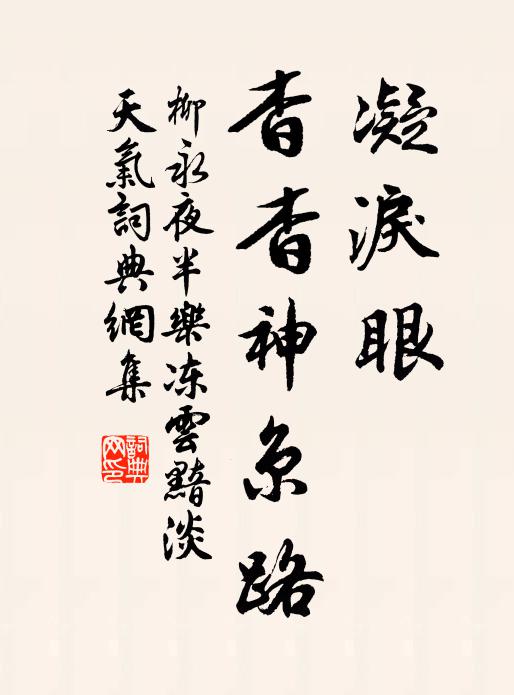 凝淚眼
杳杳神京路
柳永夜半樂冻雲黯淡
天氣詞典網集
詞典
网印